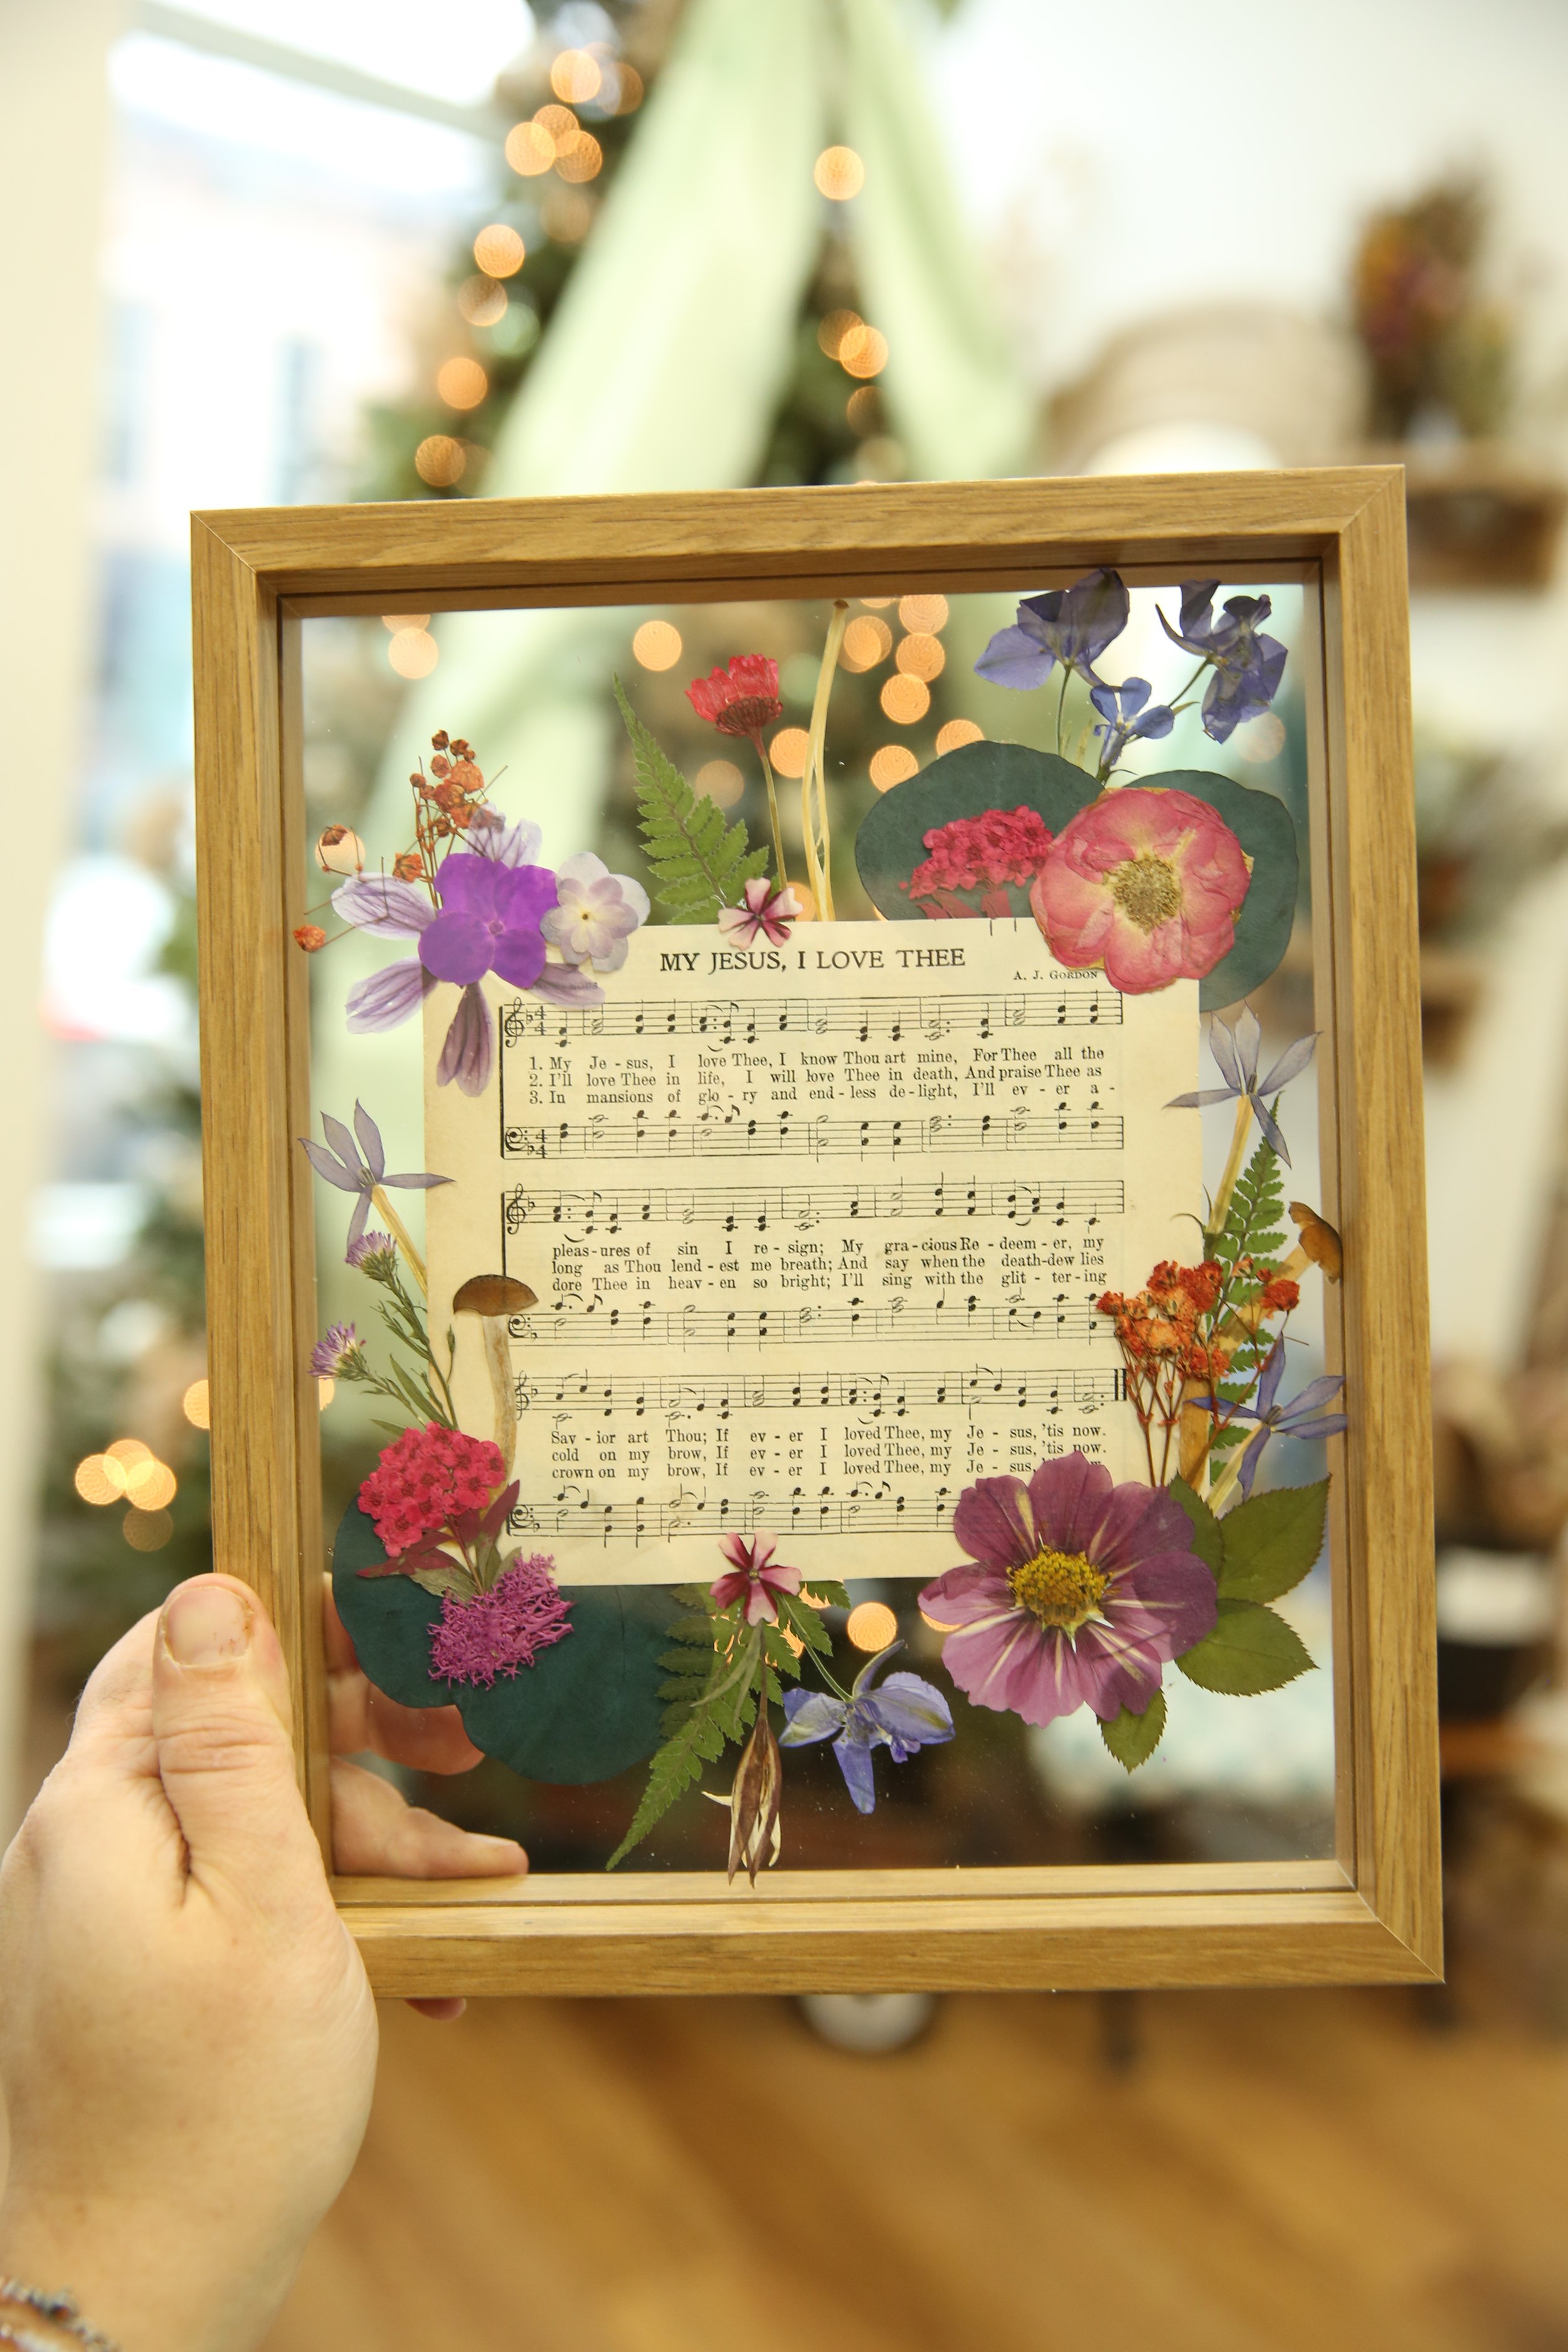 MY JESUS, I LOVE THEE
A. J. GORDON
1. My Je - sus, I love Thee, I know Thou art mine, For Thee all the
2. I'll love Thee in life, I will love Thee in death, And praise Thee as
3. In mansions of glo - ry and end - less de - light, I'll ev - er a -
pleas - ures of sin I re - sign; My gra - cious Re - deem - er, my
long as Thou lend - est me breath; And say when the death-dew lies
dore Thee in heav - en so bright; I'll sing with the glit - ter - ing
Sav - ior art Thou; If ev - er I loved Thee, my Je - sus, 'tis now.
cold on my brow, If ev - er I loved Thee, my Je - sus, 'tis now.
crown on my brow, If ev - er I loved Thee, my Je - sus,